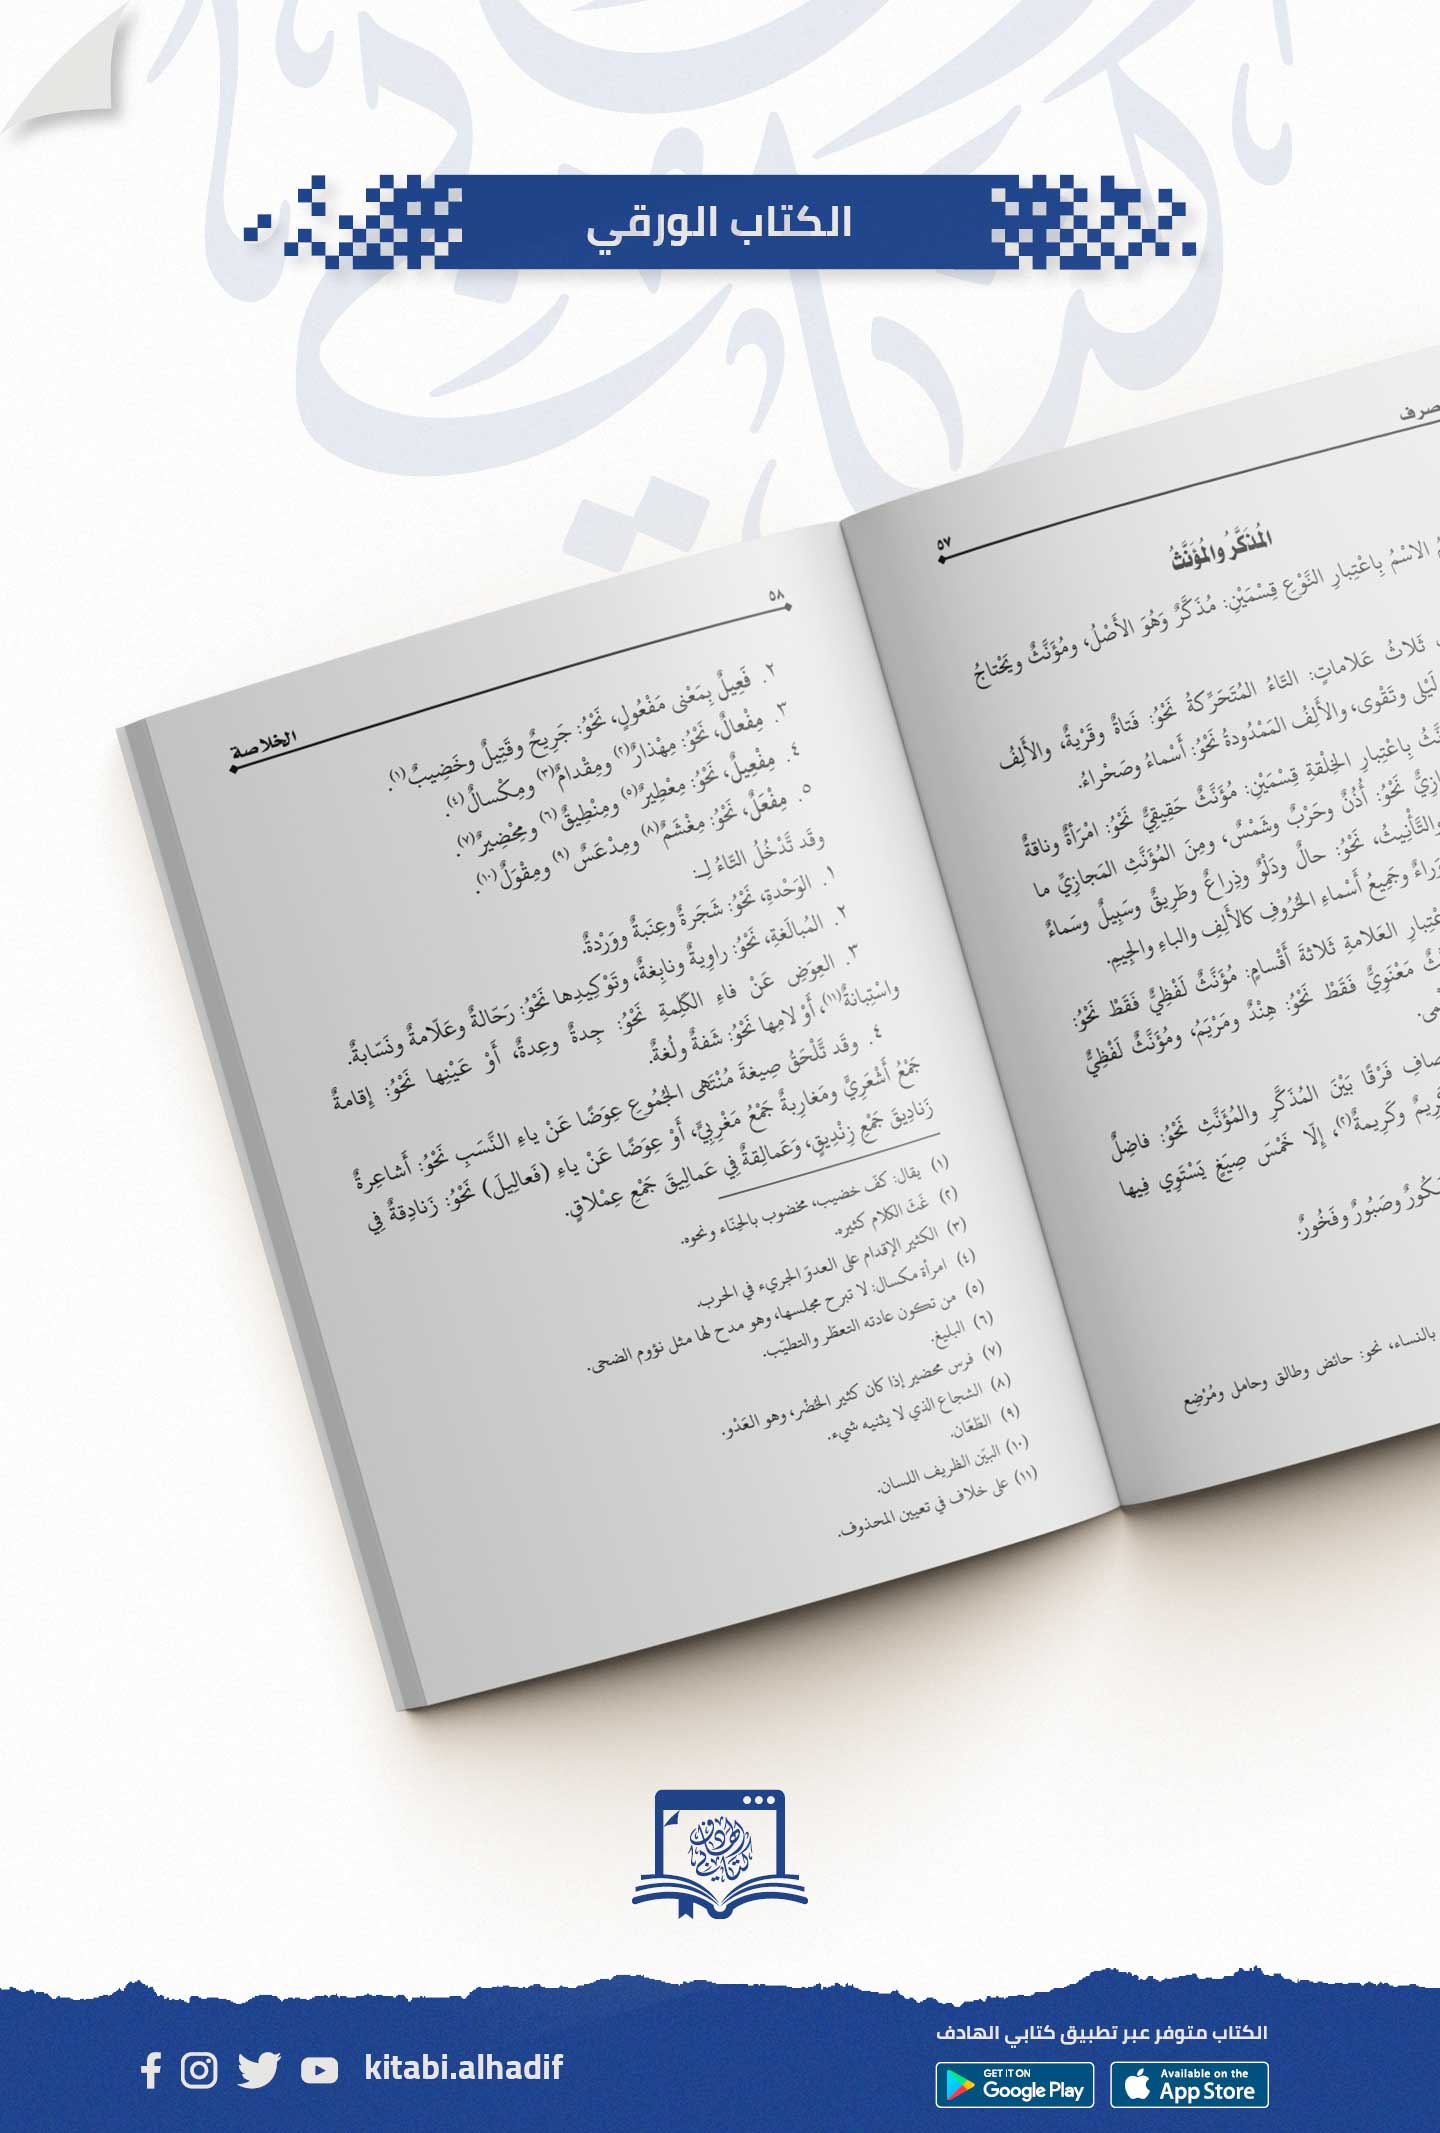 الكتاب الورقي
صرف
٥٧
المُذَكَّرُ والمُؤَنَّثُ
الاسْمُ بِاعْتِبارِ النَّوْعِ قِسْمَيْنِ: مُذَكَّرٌ وَهُوَ الأَصْلُ، ومُؤَنَّثٌ ويَحْتاجُ
ثَلاثُ عَلاماتٍ: التّاءُ المُتَحَرِّكةُ نَحْوُ: فَتاةٌ وقَرْيةٌ، والأَلِفُ
لَيْلى وتَقْوى، والأَلِفُ المَمْدُودةُ نَحْوُ: أَسْماءُ وصَحْراءُ.
بِاعْتِبارِ الخِلْقةِ قِسْمَيْنِ: مُؤَنَّثٌ حَقِيقِيٌّ نَحْوُ: امْرَأةٌ وناقةٌ
نَحْوُ: أُذُنٌ وحَرْبٌ وشَمْسٌ، ومِنَ المُؤَنَّثِ المَجازِيِّ ما
والتَّأْنِيثُ، نَحْوُ: حالٌ ودَلْوٌ وذِراعٌ وطَرِيقٌ وسَبِيلٌ وسَماءٌ
وَراءٌ وجَمِيعُ أَسْماءِ الحُرُوفِ كالأَلِفِ والباءِ والجِيمِ.
العَلامةِ ثَلاثةَ أَقْسامٍ: مُؤَنَّثٌ لَفْظِيٌّ فَقَطْ نَحْوُ:
مَعْنَوِيٌّ فَقَطْ نَحْوُ: هِنْدٌ ومَرْيَمُ، ومُؤَنَّثٌ لَفْظِيٌّ
فَرْقًا بَيْنَ المُذَكَّرِ والمُؤَنَّثِ نَحْوُ: فاضِلٌ
وكَرِيمةٌ(٢)، إِلّا خَمْسَ صِيَغٍ يَسْتَوِي فِيها
وصَبُورٌ وفَخُورٌ.
بالنساء، نحو: حائض وطالق وحامل ومُرْضِع
٥٨
الخلاصة
٢. فَعِيلٌ بِمَعْنى مَفْعُولٍ، نَحْوُ: جَرِيحٌ وقَتِيلٌ وخَضِيبٌ(١).
٣. مِفْعالٌ، نَحْوُ: مِهْذارٌ(٢) ومِقْدامٌ(٣) ومِكْسالٌ(٤).
٤. مِفْعِيلٌ، نَحْوُ: مِعْطِيرٌ(٥) ومِنْطِيقٌ(٦) ومِحْضِيرٌ(٧).
٥. مِفْعَلٌ، نَحْوُ: مِغْشَمٌ(٨) ومِدْعَسٌ(٩) ومِقْوَلٌ(١٠).
وقَد تَّدْخُلُ التّاءُ لِـ:
١. الوَحْدةِ، نَحْوُ: شَجَرةٌ وعِنَبةٌ ووَرْدةٌ.
٢. المُبالَغةِ، نَحْوُ: راوِيةٌ ونابِغةٌ، وتَوْكِيدِها نَحْوُ: رَحّالةٌ وعَلّامةٌ ونَسّابةٌ.
٣. العِوَضِ عَنْ فاءِ الكَلِمةِ نَحْوُ: جِدةٌ وعِدةٌ، أَوْ عَيْنِها نَحْوُ: إِقامةٌ
واسْتِبانةٌ(١١)، أَوْ لامِها نَحْوُ: شَفةٌ ولُغةٌ.
٤. وقَد تَّلْحَقُ صِيغةَ مُنْتَهى الجُمُوعِ عِوَضًا عَنْ ياءِ النَّسَبِ نَحْوُ: أَشاعِرةٌ
جَمْعُ أَشْعَرِيٍّ ومَغارِبةٌ جَمْعُ مَغْرِبِيٍّ، أَوْ عِوَضًا عَنْ ياءِ (فَعالِيلَ) نَحْوُ: زَنادِقةٌ فِي
زَنادِيقَ جَمْعِ زِنْدِيقٍ، وَعَمالِقةٌ فِي عَمالِيقَ جَمْعِ عِمْلاقٍ.
(١) يقال: كفّ خضيب، مخضوب بالحِنّاء ونحوه.
(٢) غَثّ الكلام كثيره.
(٣) الكثير الإقدام على العدوّ الجريء في الحرب.
(٤) امرأة مكسال: لا تبرح مجلسها، وهو مدح لها مثل نؤوم الضحى.
(٥) من تكون عادته التعطّر والتطيّب.
(٦) البليغ.
(٧) فرس محضير إذا كان كثير الحُضْر، وهو العَدْو.
(٨) الشجاع الذي لا يثنيه شيء.
(٩) الطّعّان.
(١٠) البيّن الظريف اللسان.
(١١) على خلاف في تعيين المحذوف.
كتابي الهادف
الكتاب متوفر عبر تطبيق كتابي الهادف
kitabi.alhadif
GET IT ON
Google Play
Available on the
App Store